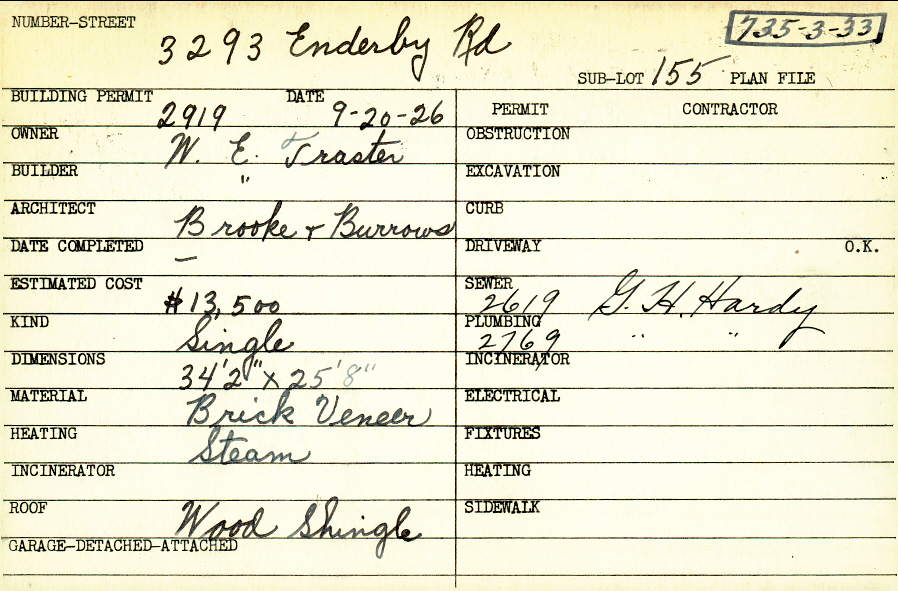 NUMBER-STREET 3293 Enderby Rd 735-3-33
SUB-LOT 155 PLAN FILE
BUILDING PERMIT 2919 DATE 9-20-26
OWNER W. E. Traster
BUILDER "
ARCHITECT Brooke + Burrows
DATE COMPLETED —
ESTIMATED COST $13,500
KIND Single
DIMENSIONS 34'2" x 25'8"
MATERIAL Brick Veneer
HEATING Steam
INCINERATOR
ROOF Wood Shingle
GARAGE-DETACHED-ATTACHED
PERMIT CONTRACTOR
OBSTRUCTION
EXCAVATION
CURB
DRIVEWAY O.K.
SEWER 2619 G. H. Hardy
PLUMBING 2769 " "
INCINERATOR
ELECTRICAL
FIXTURES
HEATING
SIDEWALK